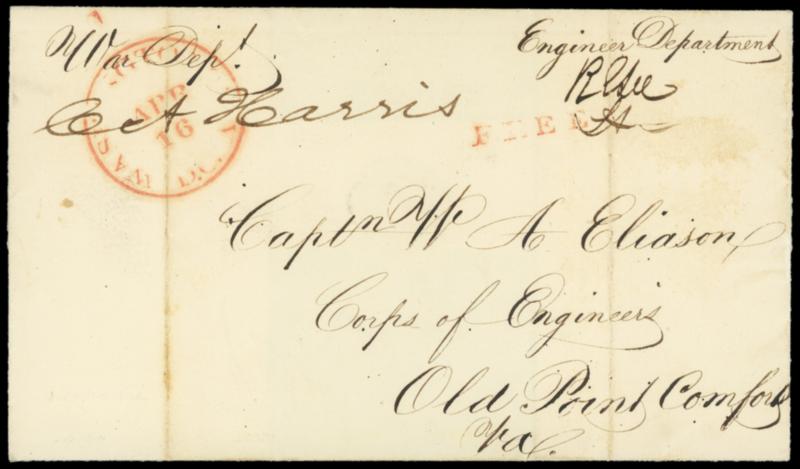 War Dept.
Engineer Department
C A Harris
R E Lee
Lt
WASHINGTON D.C.
APR
16
FREE
Captn W A Eliason,
Corps of Engineers
Old Point Comfort
Va.